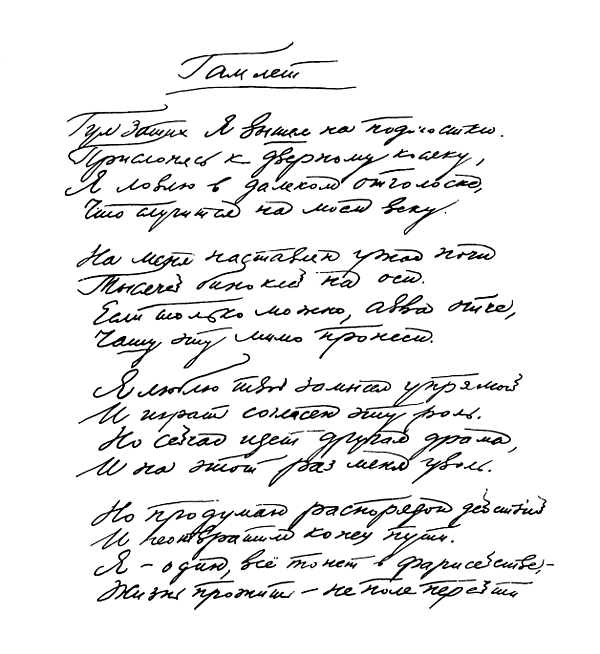 Гамлет
Гул затих Я вышел на подмостки.
Прислонясь к дверному косяку,
Я ловлю в далеком отголоске,
Что случится на моем веку.
На меня наставлен сумрак ночи
Тысячей биноклей на оси.
Если только можно, авва отче,
Чашу эту мимо пронеси.
Я люблю твой замысел упрямый
И играть согласен эту роль.
Но сейчас идет другая драма,
И на этот раз меня уволь.
Но продуман распорядок действий
И неотвратим конец пути.
Я – один, всё тонет в фарисействе, –
Жизнь прожить – не поле перейти